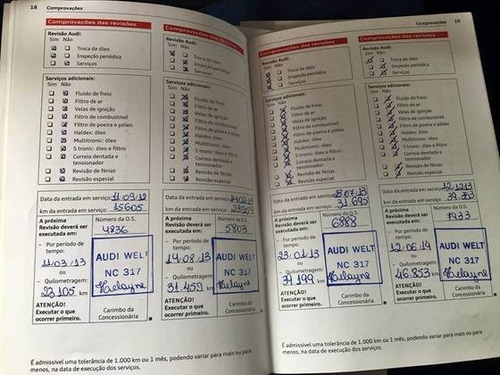 18 Comprovações
Comprovações das revisões
Revisão Audi:
Sim Não
Troca de óleo
Inspeção periódica
Serviços
Serviços adicionais:
Sim Não
Fluido de freio
Filtro de ar
Velas de ignição
Filtro de combustível
Filtro de poeira e pólen
Haldex: óleo
Multitronic: óleo
S tronic: óleo e filtro
Correia dentada e
tensionador
Revisão de férias
Revisão especial
Data da entrada em serviço: 11.09.12
km da entrada em serviço: 15605
A próxima
Revisão deverá ser
executada em:
Número da O.S.
4936
- Por período de
tempo:
11/03/13
ou
- Quilometragem:
23.105 km
ATENÇÃO!
Executar o que
ocorrer primeiro.
AUDI WELT
NC 317
Helayne
Carimbo da
Concessionária
Comprovações das revisões
Revisão Audi:
Sim Não
Troca de óleo
Inspeção periódica
Serviços
Serviços adicionais:
Sim Não
Fluido de freio
Filtro de ar
Velas de ignição
Filtro de combustível
Filtro de poeira e pólen
Haldex: óleo
Multitronic: óleo
S tronic: óleo e filtro
Correia dentada e
tensionador
Revisão de férias
Revisão especial
Data da entrada em serviço:
km da entrada em serviço:
A próxima
Revisão deverá ser
executada em:
Número da O.S.
5803
- Por período de
tempo:
14.08.13
ou
- Quilometragem:
31.453 km
ATENÇÃO!
Executar o que
ocorrer primeiro.
AUDI WELT
NC 317
Helayne
Carimbo da
Concessionária
É admissível uma tolerância de 1.000 km ou 1 mês, podendo variar para mais ou para
menos, na data de execução dos serviços.
Comprovações 19
Comprovações das revisões
Revisão Audi:
Sim Não
Troca de óleo
Inspeção periódica
Serviços
Serviços adicionais:
Sim Não
Fluido de freio
Filtro de ar
Velas de ignição
Filtro de combustível
Filtro de poeira e pólen
Haldex: óleo
Multitronic: óleo
S tronic: óleo e filtro
Correia dentada e
tensionador
Revisão de férias
Revisão especial
Data da entrada em serviço:
km da entrada em serviço: 31695
A próxima
Revisão deverá ser
executada em:
Número da O.S.
6988
- Por período de
tempo:
23.01.13
ou
- Quilometragem:
39199 km
ATENÇÃO!
Executar o que
ocorrer primeiro.
AUDI WELT
NC 317
Helayne
Carimbo da
Concessionária
Comprovações das revisões
Revisão Audi:
Sim Não
Troca de óleo
Inspeção periódica
Serviços
Serviços adicionais:
Sim Não
Fluido de freio
Filtro de ar
Velas de ignição
Filtro de combustível
Filtro de poeira e pólen
Haldex: óleo
Multitronic: óleo
S tronic: óleo e filtro
Correia dentada e
tensionador
Revisão de férias
Revisão especial
Data da entrada em serviço: 12.12.13
km da entrada em serviço: 39.353
A próxima
Revisão deverá ser
executada em:
Número da O.S.
- Por período de
tempo:
12.06.14
ou
- Quilometragem:
46.853 km
ATENÇÃO!
Executar o que
ocorrer primeiro.
AUDI WELT
NC 317
Helayne
Carimbo da
Concessionária
É admissível uma tolerância de 1.000 km ou 1 mês, podendo variar para mais ou para
menos, na data de execução dos serviços.